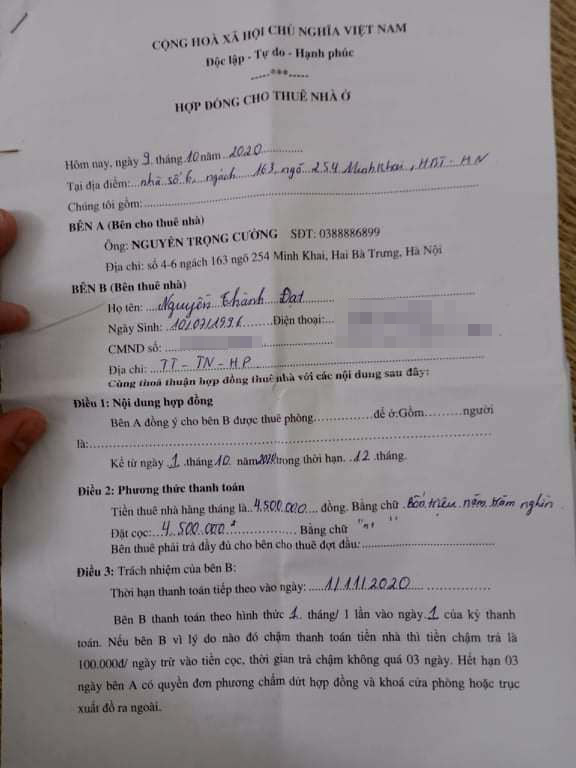 CỘNG HOÀ XÃ HỘI CHỦ NGHĨA VIỆT NAM
Độc lập - Tự do - Hạnh phúc
-----***-----
HỢP ĐỒNG CHO THUÊ NHÀ Ở
Hôm nay, ngày 9 tháng 10 năm 2020
Tại địa điểm: nhà số 6, ngách 163 ngõ 254 Minh Khai, HBT - HN
Chúng tôi gồm:
BÊN A (Bên cho thuê nhà)
Ông: NGUYỄN TRỌNG CƯỜNG SĐT: 0388886899
Địa chỉ: số 4-6 ngách 163 ngõ 254 Minh Khai, Hai Bà Trưng, Hà Nội
BÊN B (Bên thuê nhà)
Họ tên: Nguyễn Thành Đạt
Ngày Sinh: 10/07/1996 Điện thoại:
CMND số:
Địa chỉ: TT - TN - HP
Cùng thoả thuận hợp đồng thuê nhà với các nội dung sau đây:
Điều 1: Nội dung hợp đồng
Bên A đồng ý cho bên B được thuê phòng............để ở:Gồm.........người
là:
Kể từ ngày 1 tháng 10 năm 2020 trong thời hạn 12 tháng.
Điều 2: Phương thức thanh toán
Tiền thuê nhà hàng tháng là 4.500.000 đồng. Bằng chữ bốn triệu năm trăm nghìn
Đặt cọc: 4.500.000đ Bằng chữ " "
Bên thuê phải trả đầy đủ cho bên cho thuê đợt đầu:
Điều 3: Trách nhiệm của bên B:
Thời hạn thanh toán tiếp theo vào ngày: 1/11/2020
Bên B thanh toán theo hình thức 1 tháng/ 1 lần vào ngày 1 của kỳ thanh
toán. Nếu bên B vì lý do nào đó chậm thanh toán tiền nhà thì tiền chậm trả là
100.000đ/ ngày trừ vào tiền cọc, thời gian trả chậm không quá 03 ngày. Hết hạn 03
ngày bên A có quyền đơn phương chấm dứt hợp đồng và khoá cửa phòng hoặc trục
xuất đồ ra ngoài.